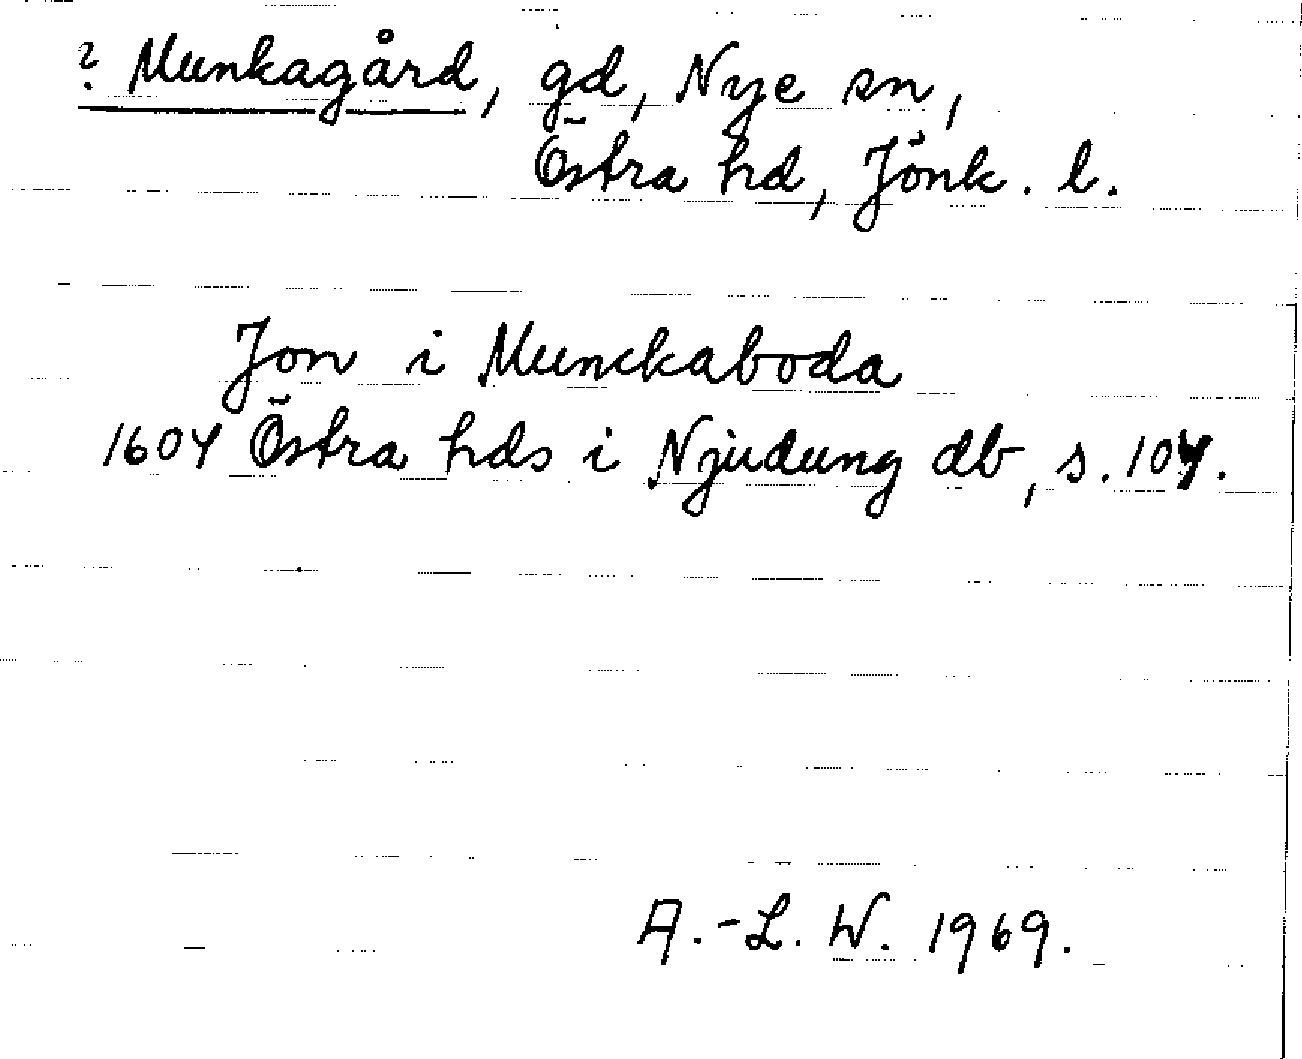 ? Munkagård, gd, Nye sn,
Östra hd, Jönk. l.
Jon i Munckaboda
1604 Östra hds i Njudung db, s. 104.
A.-L. W. 1969.